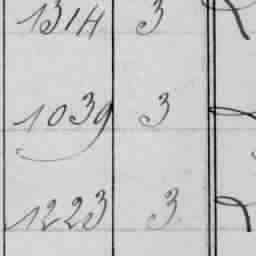 1314 3
1039 3
1223 3